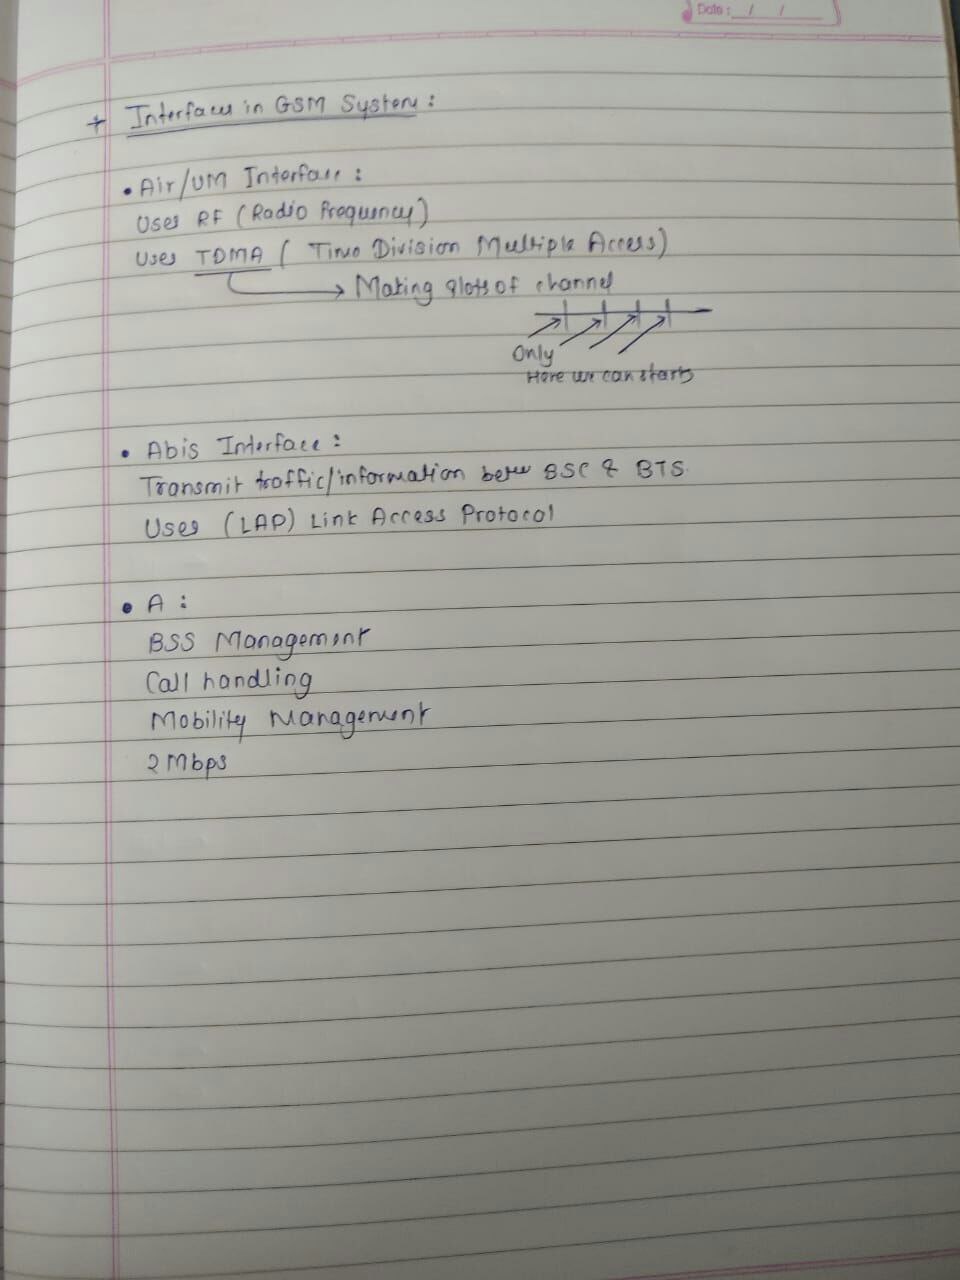 Date: / /
+ Interfaces in GSM System:
• Air/UM Interface:
Uses RF (Radio Frequency)
Uses TDMA ( Time Division Multiple Access)
→ Making slots of channel
Only
Here we can starts
• Abis Interface:
Transmit traffic/information betw BSC & BTS.
Uses (LAP) Link Access Protocol
• A:
BSS Management
Call handling
Mobility Management
2 Mbps